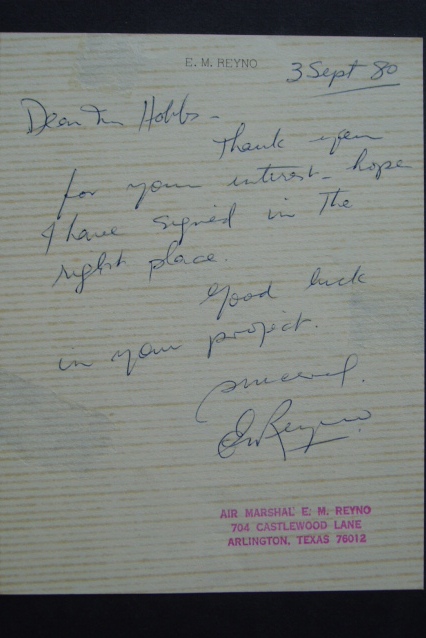 E. M. REYNO
3 Sept 80
Dear Mr Hobbs -
Thank you
for your interest - hope
I have signed in the
right place.
Good luck
in your project.
Sincerely.
EMReyno.
AIR MARSHAL E. M. REYNO
704 CASTLEWOOD LANE
ARLINGTON, TEXAS 76012